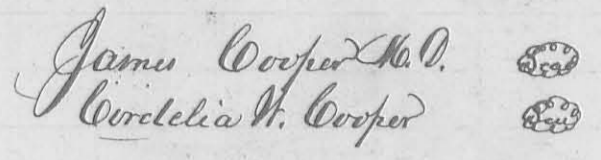 James Cooper M.D. Seal
Cordelia W. Cooper Seal